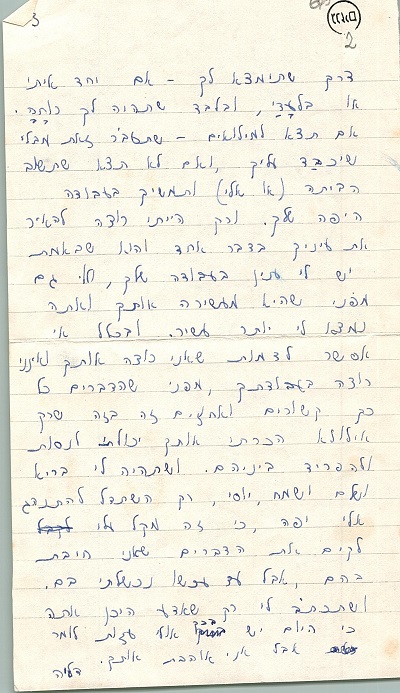 3
2
דרך שתימצא לך - אם יחד איתי
או בלעדי, ובלבד שתהיה לך נוחה.
אם תצא למילואים - שתעבור זאת מבלי
שיכבד עליך, ואם לא תצא שתשוב
הביתה (או אלי) ותמשיך בעבודה
היפה שלך. ורק הייתי רוצה להאיר
את עיניך בדבר אחד והוא שבאמת
יש לי ענין בעבודה שלך, גם
מפני שהיא מעשירה אותך ואתה
נמצא לי יותר עשיר. ובכלל אי
אפשר לדמות שאני רוצה אותך ואינני
רוצה בעבודתך, מפני שהדברים כל
כך קשורים ואחוזים זה בזה שרק
אילולא הכרתי אותך יכולתי לנסות
ולהפריד ביניהם. ושתהיה לי בריא
ושלם ושמח, יוסי, רק השתדל להתנהג
אלי יפה, כי זה מקל עלי
לקים את הדברים שאני חיבת
בהם, אבל עד עכשו נכשלתי בם.
ושתכתב לי רק שאדע היכן אתה
כי היום יש בכך אולי עזות לומר
אבל אני אוהבת אותך. דליה